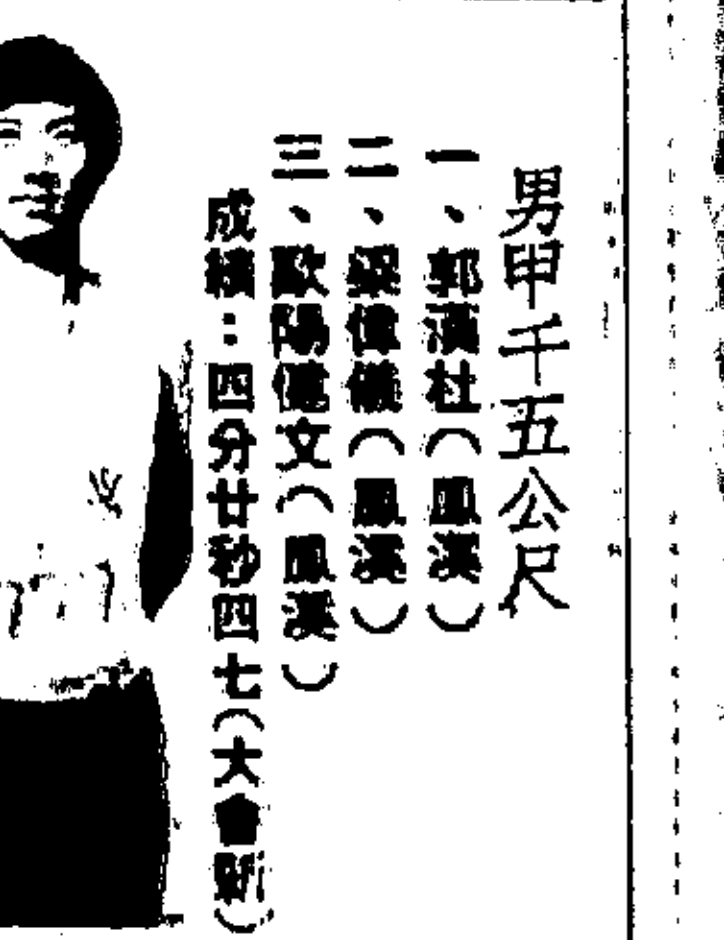 男甲千五公尺
一、郭漢杜（鳳溪）
二、梁偉儀（鳳溪）
三、歐陽健文（鳳溪）
成績：四分廿秒四七（大會新）